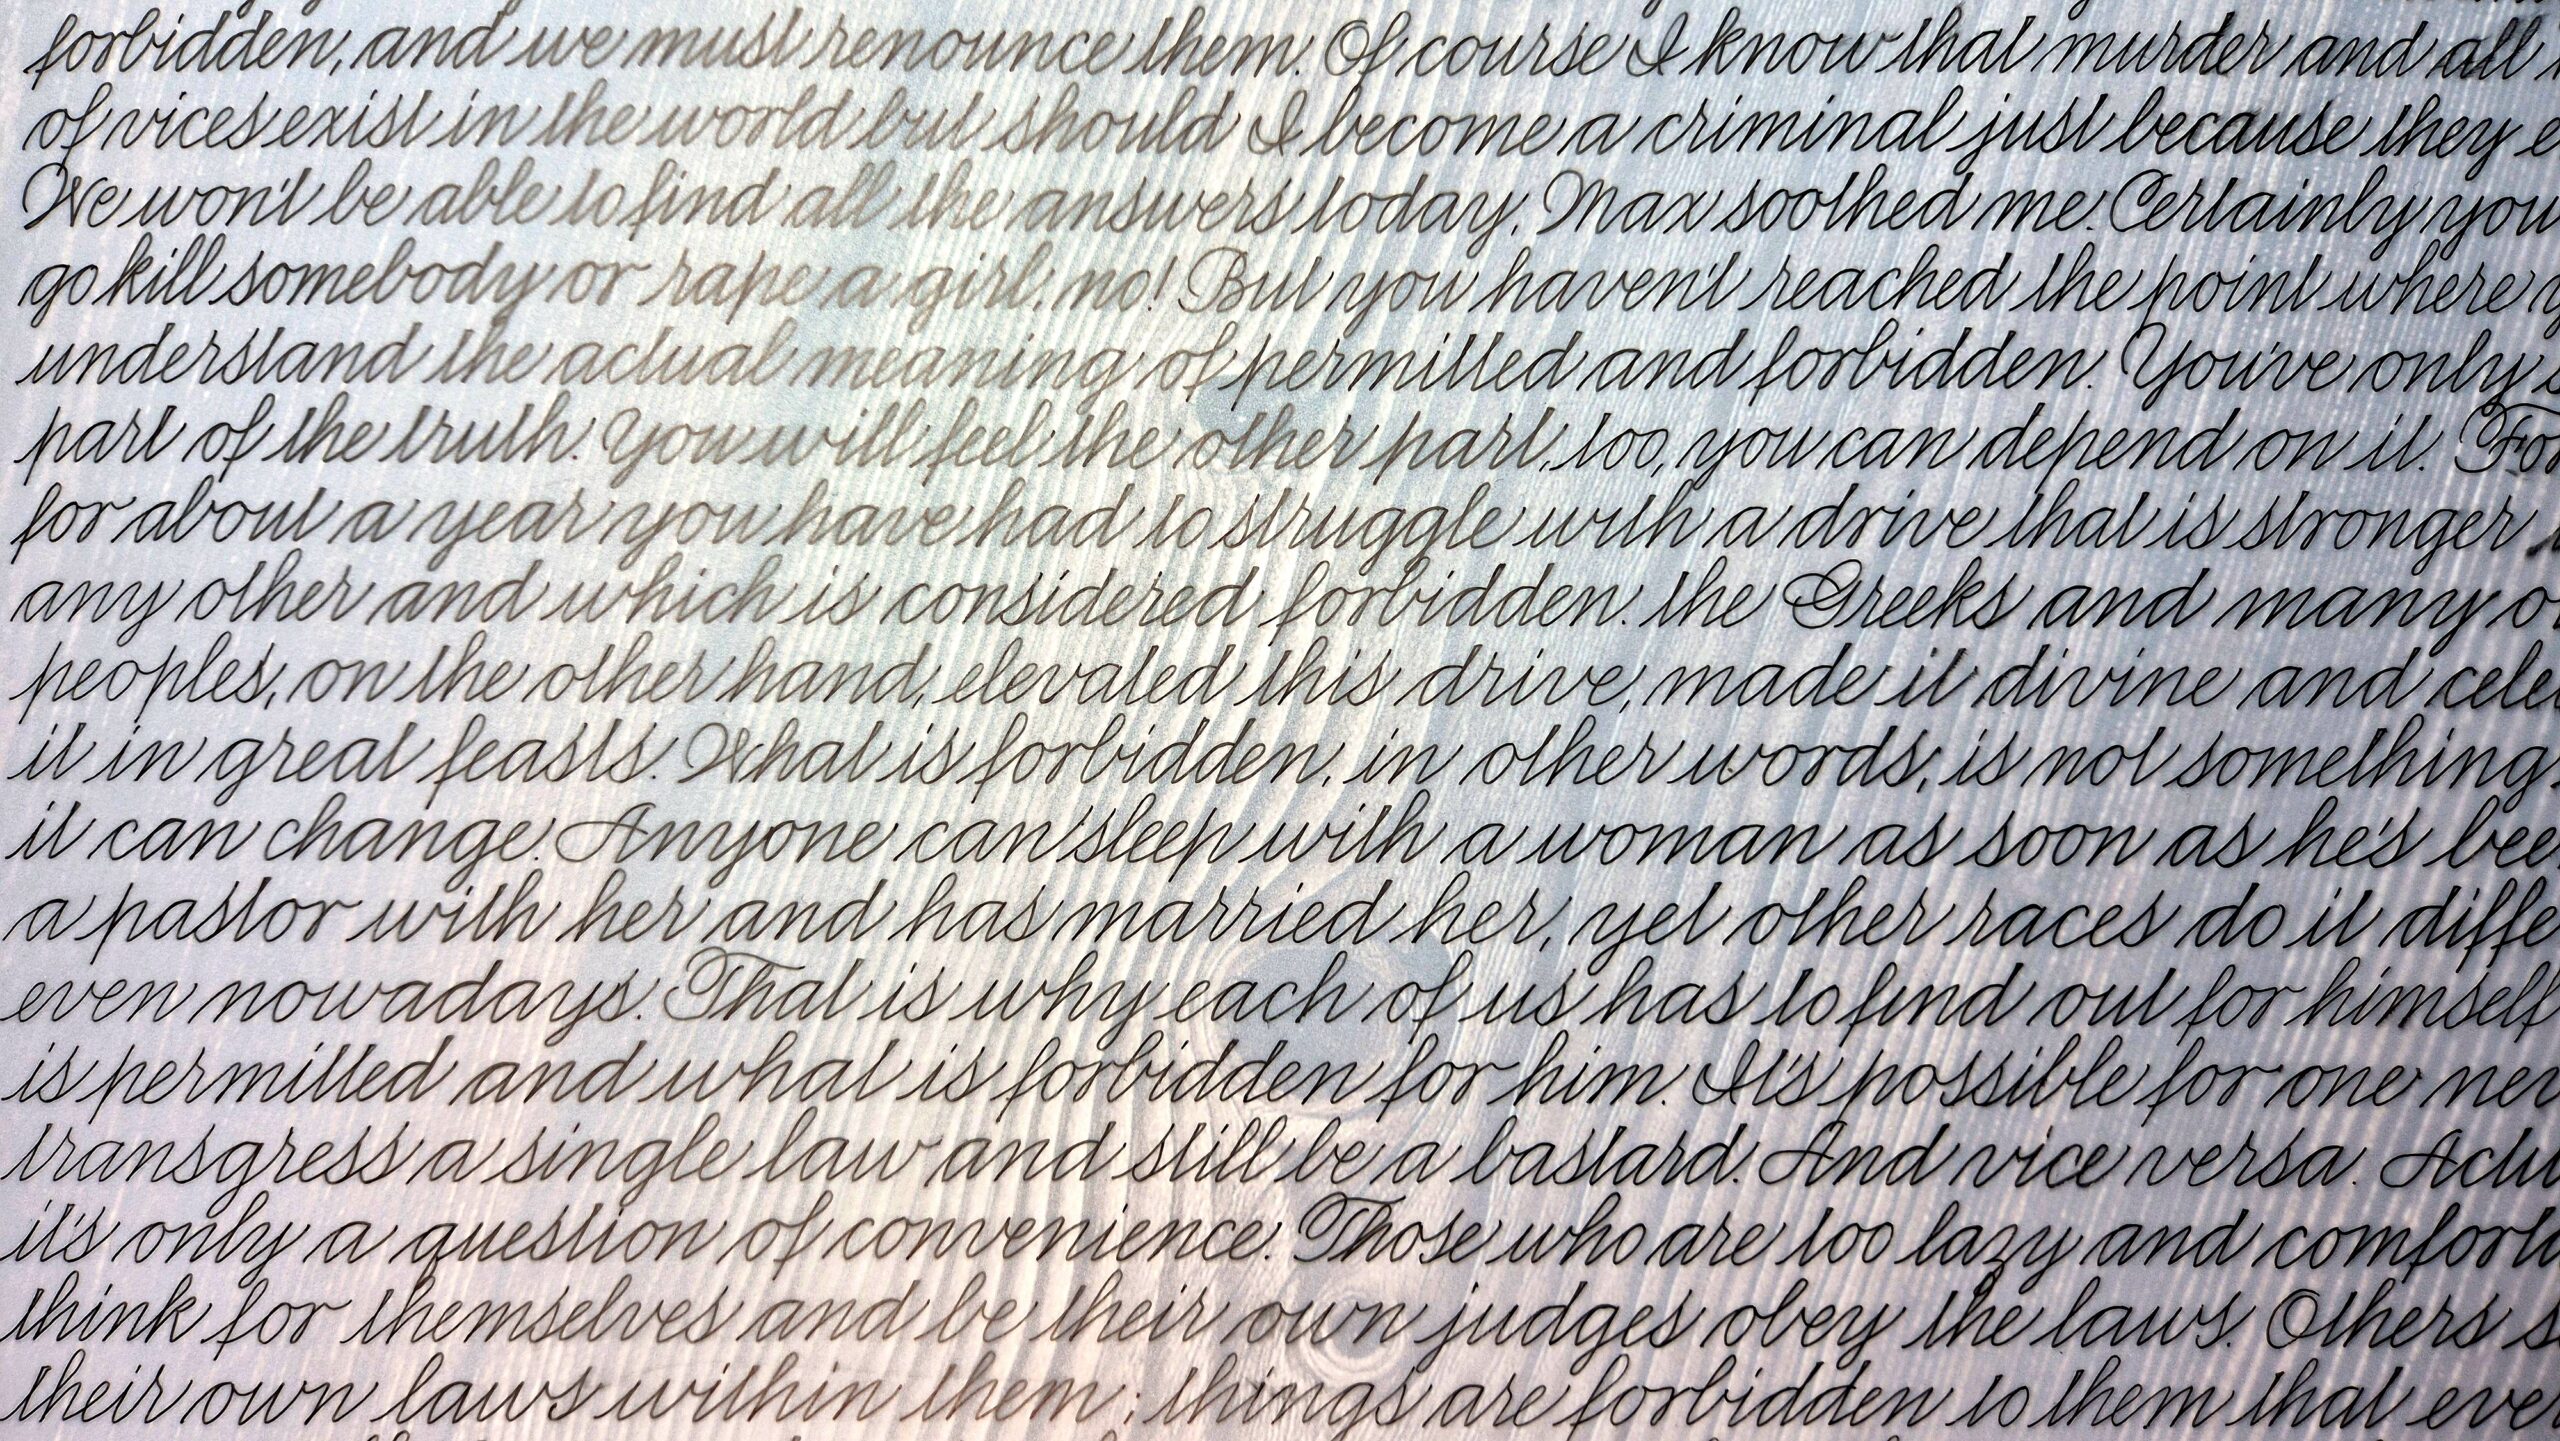 forbidden, and we must renounce them. Of course I know that murder and all
of vices exist in the world but should I become a criminal just because they
We won't be able to find all the answers today, Max soothed me. Certainly you
go kill somebody or rape a girl, no! But you haven't reached the point where
understand the actual meaning of permitted and forbidden. You've only
part of the truth. You will feel the other part, too, you can depend on it. For
for about a year you have had to struggle with a drive that is stronger
any other and which is considered forbidden. the Greeks and many
peoples, on the other hand, elevated this drive, made it divine and cele
it in great feasts. What is forbidden, in other words, is not something
it can change. Anyone can sleep with a woman as soon as he's bee
a pastor with her and has married her, yet other races do it diffe
even nowadays. That is why each of us has to find out for himself
is permitted and what is forbidden for him. It's possible for one nev
transgress a single law and still be a bastard. And vice versa. Actu
it's only a question of convenience. Those who are too lazy and comfort
think for themselves and be their own judges obey the laws. Others s
their own laws within them; things are forbidden to them that eve